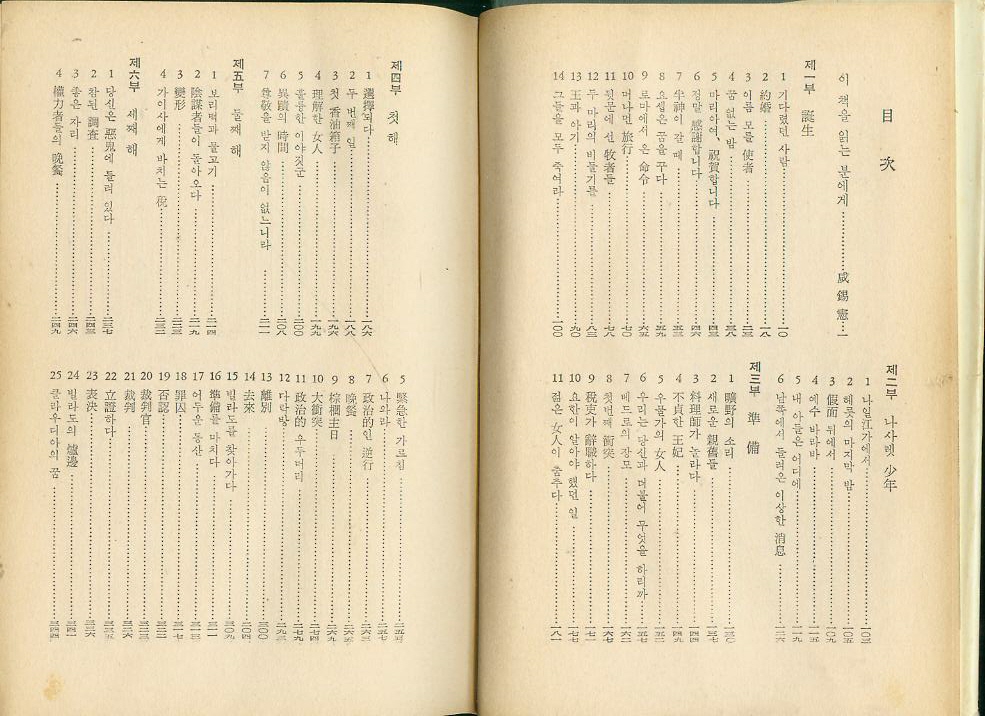 目 次
이 책을 읽는 분에게 咸錫憲 一
제一부 誕生
1 기다렸던 사람 一〇
2 約婚 一八
3 이름 모를 使者 二三
4 꿈 없는 밤 三八
5 마리아여, 祝賀합니다 四三
6 정말 感謝합니다 四六
7 牛神이 갈 때 五三
8 요셉은 꿈을 꾸다 五九
9 로마에서 온 命令 六五
10 머나먼 旅行 七〇
11 뒷문에 선 牧者들 七八
12 두 마리의 비둘기를 八三
13 王과 아기 九〇
14 그들을 모두 죽여라 一〇〇
제二부 나사렛 少年
1 나일江가에서 一〇三
2 헤롯의 마지막 밤 一〇五
3 假面 뒤에서 一〇九
4 예수 바라바 一一五
5 내 아들은 어디에 一一九
6 남쪽에서 들려온 이상한 消息 一二六
제三부 準備
1 曠野의 소리 一三〇
2 새로운 親舊들 一三七
3 料理師가 놀라다 一四四
4 不貞한 王妃 一四九
5 우물가의 女人 一五三
6 우리는 당신과 더불어 무엇을 하리까 一五七
7 베드로의 장모 一六二
8 첫번째 衝突 一六七
9 稅吏가 辭職하다 一七一
10 요한이 알아야 했던 일 一七七
11 젊은 女人이 춤추다 一八一
제四부 첫 해
1 選擇되다 一八六
2 두 번째 일 一八八
3 첫 香油箱子 一九六
4 理解한 女人 一九九
5 훌륭한 이야깃군 二〇〇
6 異蹟의 時間 二〇八
7 尊敬을 받지 않음이 없느니라 二一一
제五부 둘째 해
1 보리떡과 물고기 二一四
2 陰謀者들이 돌아오다 二一九
3 變形 二二三
4 가이사에게 바치는 稅 二三二
제六부 세째 해
1 당신은 惡鬼에 들려 있다 二三七
2 참된 調査 二四三
3 좋은 자리 二四六
4 權力者들의 晩餐 二四九
5 緊急한 가르침 二五三
6 나와라 二五七
7 政治的인 逆行 二六三
8 晩餐 二六五
9 棕櫚主日 二六九
10 大衝突 二七四
11 政治的 우두머리 二七九
12 다락방 二九三
13 離別 三〇〇
14 去來 三〇四
15 빌라도를 찾아가다 三〇九
16 準備를 마치다 三一一
17 어두운 동산 三一三
18 罪囚 三一七
19 否認 三二二
20 裁判官 三二三
21 裁判 三二六
22 立證하다 三三五
23 表決 三三六
24 빌라도의 爐邊 三四一
25 클라우디아의 꿈 三四四